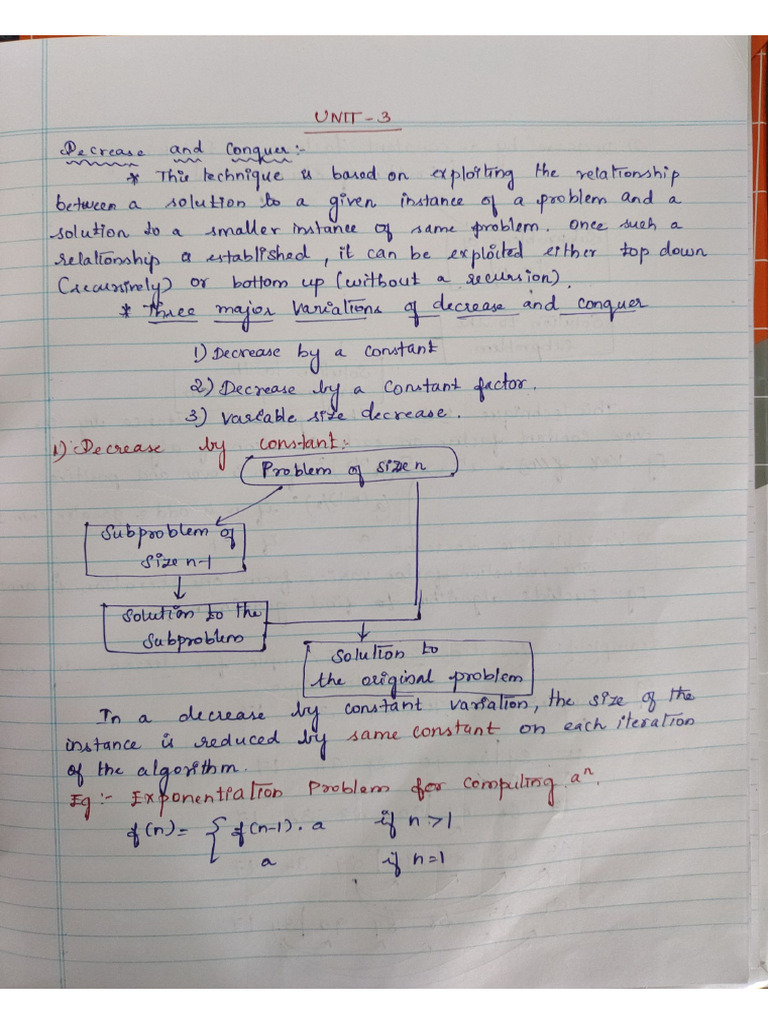 UNIT - 3
Decrease and Conquer :-
* This technique is based on exploiting the relationship
between a solution to a given instance of a problem and a
solution to a smaller instance of same problem. Once such a
relationship is established, it can be exploited either top down
(recursively) or bottom up (without a recursion).
* Three major variations of decrease and conquer
1) Decrease by a constant
2) Decrease by a constant factor.
3) Variable size decrease.
1) Decrease by constant :-
Problem of size n
Subproblem of
size n-1
Solution to the
Subproblem
Solution to
the original problem
In a decrease by constant variation, the size of the
instance is reduced by same constant on each iteration
of the algorithm.
Eg :- Exponentiation Problem for computing aⁿ
f(n) = { f(n-1) . a if n > 1
a if n = 1